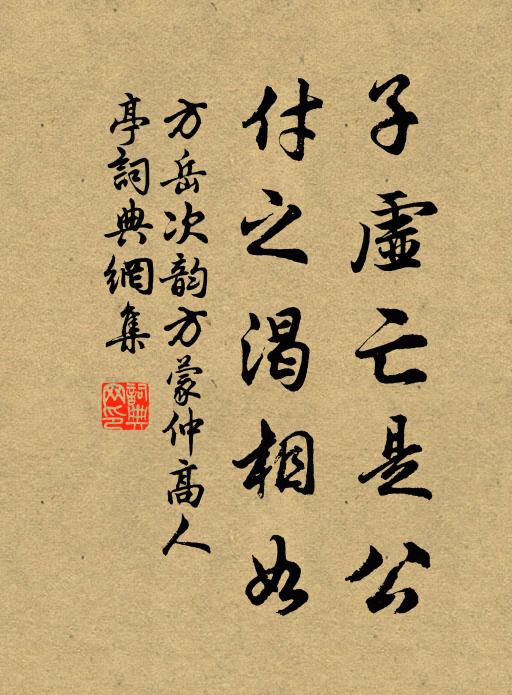 子虛亡是公
付之渴相如
方岳次韵方蒙仲高人
亭詞典網集
詞典
网印